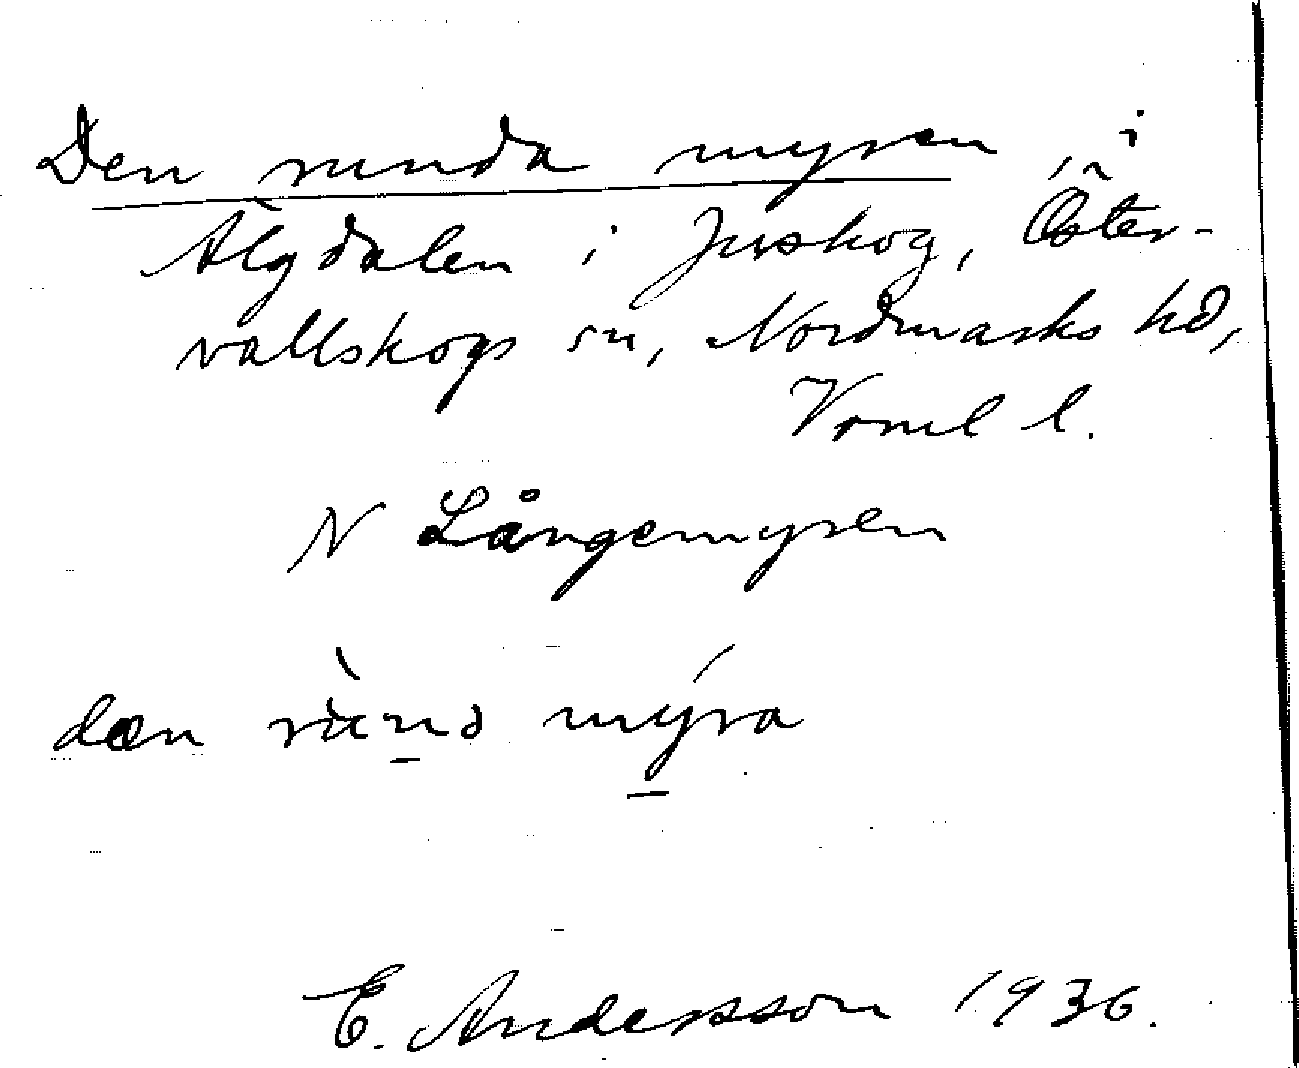 Den runda myren i
Älgdalen i Juskog, Öster-
vallskogs sn, Nordmarks hd,
Vrml l.
N Långemyren
dæn rùnə mýra
E. Andersson 1936.